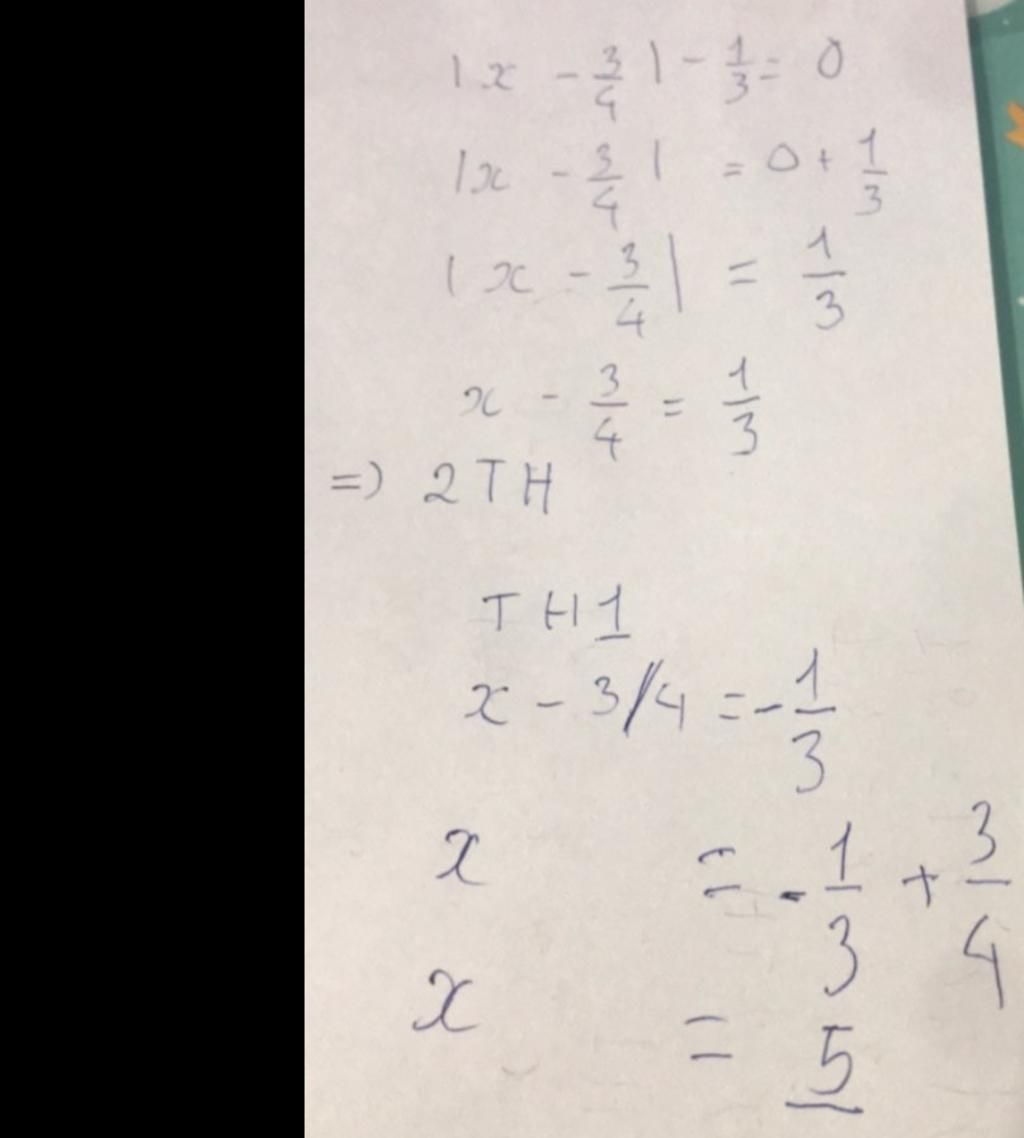 |x - 3/4| - 1/3 = 0
|x - 3/4| = 0 + 1/3
|x - 3/4| = 1/3
x - 3/4 = 1/3
=) 2TH
TH1
x - 3/4 = - 1/3
x = - 1/3 + 3/4
x = 5